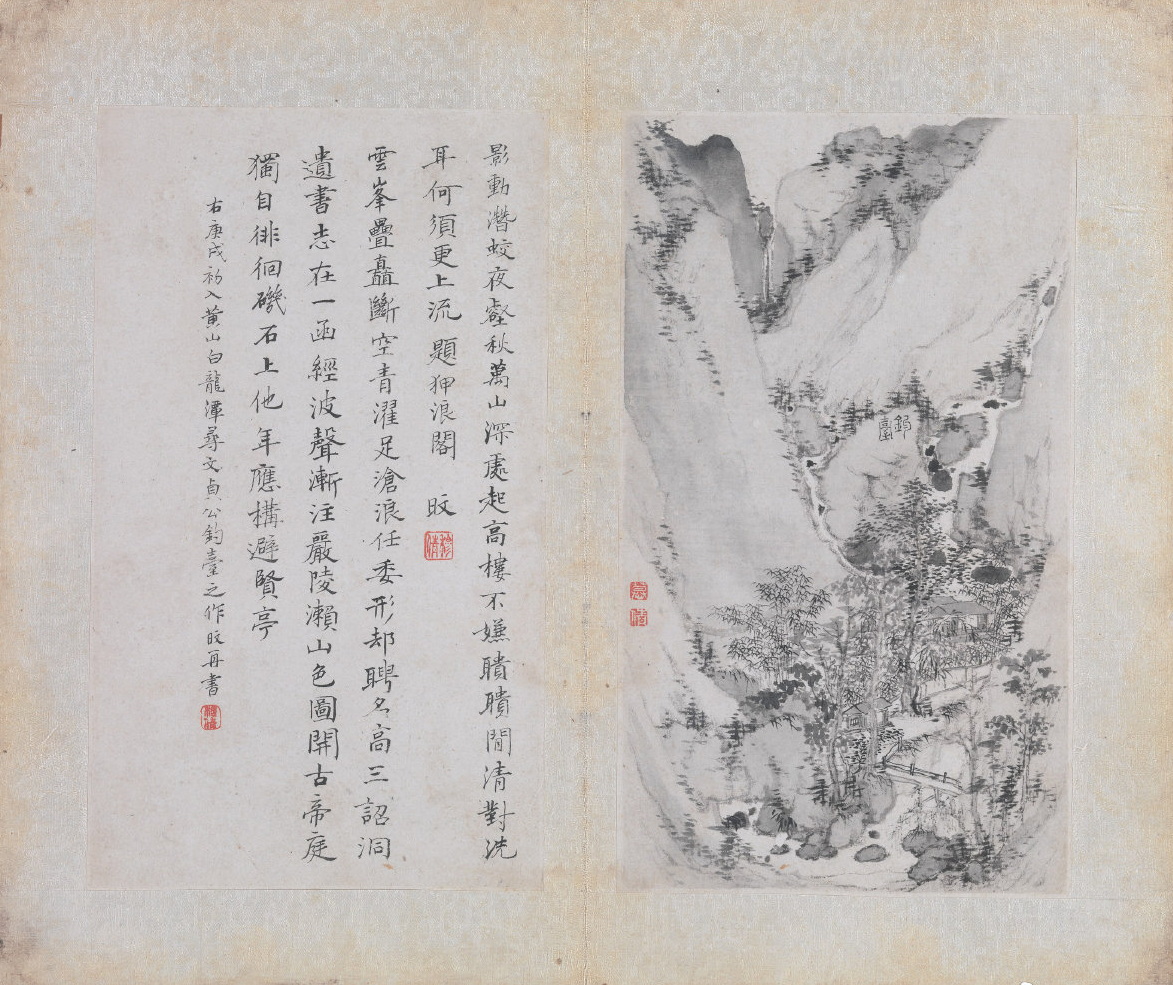 釣臺
慕
倩
影動潛蛟夜壑秋萬山深處起高樓不嫌聵聵閒清對洗
耳何須更上流 題狎浪閣 旼
雲峯疊矗斷空青濯足滄浪任委形却聘名高三詔洞
遺書志在一函經波聲漸注嚴陵瀨山色圖開古帝庭
獨自徘徊磯石上他年應構避賢亭
右庚戌初入黃山白龍潭尋文貞公釣臺之作旼再書